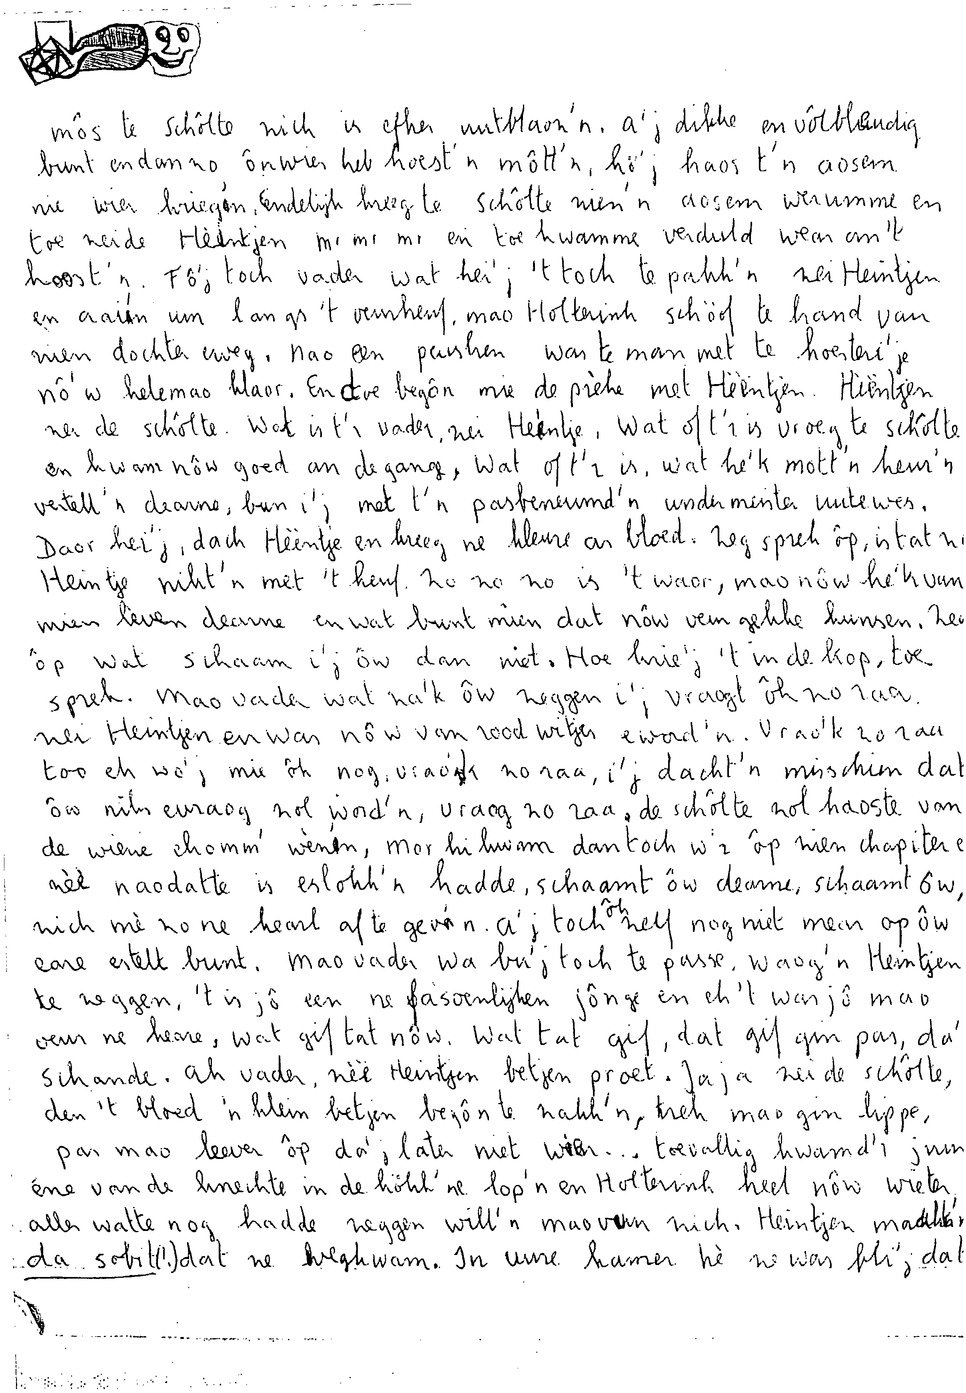 môs te schôlte nich is efken uutblaon'n. a'j dikke en vôlbleudig
bunt en dan no ônwies heb hoest'n môtt'n, kö'j haos t'n aosem
nie wier kriegen. Endelijk kreeg te schôlte zien'n aosem werumme en
toe zeide Hèèntjen m, m, m, en toe kwamme verduld wear an't
hoost'n. Fô'j toch vader wat hei'j 't toch te pakk'n zei Heintjen
en aaien um langs 't veurheuf, mao Holterink schööf te hand van
zien dochter eweg. Nao een pausken was te man met te hoesteri'je
nô'w helemao klaor. En toe begôn mie de prèke met Hèèntjen. Hièntjen
zei de schôlte. Wat is t'r vader, zei Heintje, Wat of t'r is vroeg te schôlte
en kwam nôw goed an de gang, Wat of t'r is, wat he'k mott'n heur'n
vertell'n dearne, bun i'j met t'n pasbeneumd'n undermeister uutewes.
Daor hei'j, dach Hèèntje en kreeg ne kleure as bloed. Zeg sprek ôp, is tat zo
Heintje nikt'n met 't heuf. Zo zo zo is 't waor, mao nôw he'k van
mien lèven dearne en wat bunt mien dat nôw veur gekke kunsen. Zeg
ôp wat schaam i'j ôw dan niet. Hoe krie'j 't in de kop, toe
sprek. Mao vader wat za'k ôw zeggen i'j vraogt ôk zo raa.
zei Heintjen en was nôw van rood witjes eword'n. Vrao'k zo raa
too eh wô'j mie ôk nog, vrao'k zo raa, i'j dacht'n misschien dat
ôw niks evraog zol word'n, vraog zo raa, de schôlte zol haoste van
de wiene ekomm' wènen, mor hi kwam dan toch w'r ôp zien chapitere
nèè naodatte is eslokk'n hadde, schaamt ôw dearne, schaamt ôw,
nich mè zo ne kearl af te gevn. a'j toch ôk zelf nog niet mear op ôw
eare estelt bunt. Mao vader wa bu'j toch te passe, waog'n Heintjen
te zeggen, 't is jô een ne fasoenlijken jônge en eh 't was jô mao
veur ne keare, wat gif tat nôw. Wat tat gif, dat gif gin pas, da'
schande. Ah vader, nèè Heintjen betjen proet. Ja ja zei de schôlte,
den 't bloed 'n klein betjen begôn te zakk'n, trek mao gin lippe,
pas mao leever ôp da'j later niet wier... toevallig kwam d'r juus
ene van de knechte in de kökk'ne lop'n en Holterink heel nôw wieter
alles watte nog hadde zeggen will'n mao veur zich. Heintjen maakte'n
da sobit(!) dat ze wegkwam. In eure kamer hè ze was bli'j dat